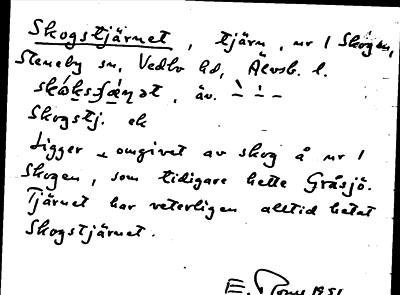 Skogstjärnet, tjärn, nr 1 Skogen,
Steneby sn, Vedbo hd, Älvsb. l.
äv.
Skogstj. ek
Ligger omgivet av skog å nr 1
Skogen, som tidigare hette Gråsjö.
Tjärnet har veterligen alltid hetat
Skogstjärnet.
E.